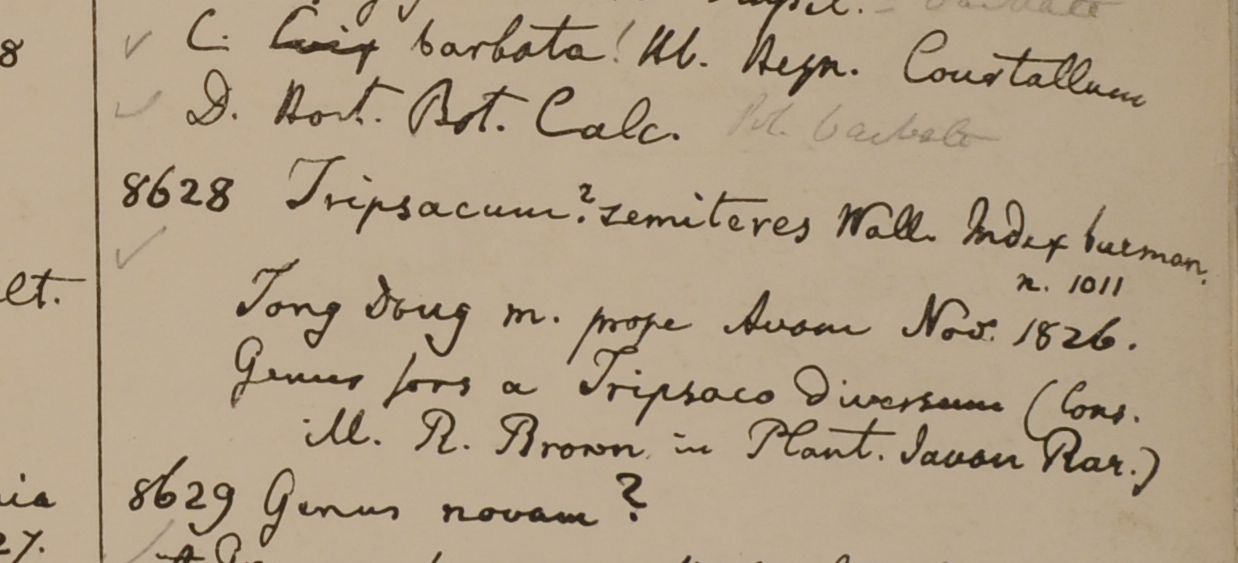 8
C. Coix barbata! Hb. Heyn. Courtallum
D. Hort. Bot. Calc. barbata
8628 Tripsacum? semiteres Wall. Index burman.
n. 1011
elt.
Tong Dong m. prope Avam Nov. 1826.
Genus fors a Tripsaco diversum (Cons.
ill. R. Brown in Plant. Javan Rar.)
8629 Genus novam?
nia
27.